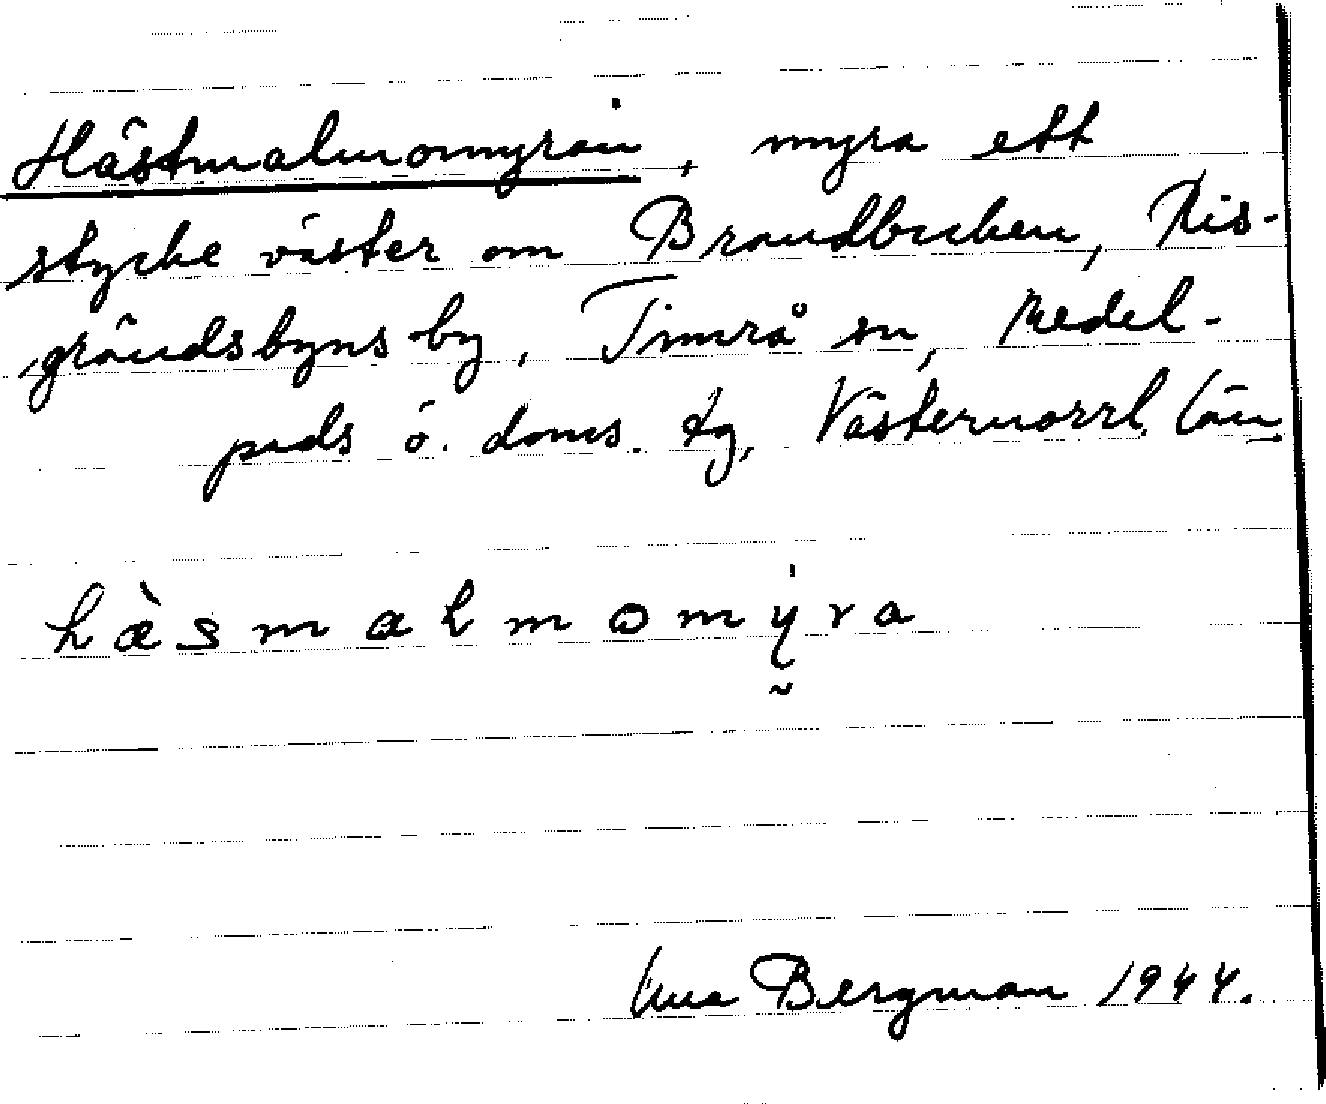 Hästmalmomyran, myra ett
stycke väster om Brandbicken, Ris-
grändsbyns by, Timrå sn, Medel-
pads ö. doms. tg, Västernorrl. län.
hæ̀smaLmomy̰̍ra
Bergman 1944.